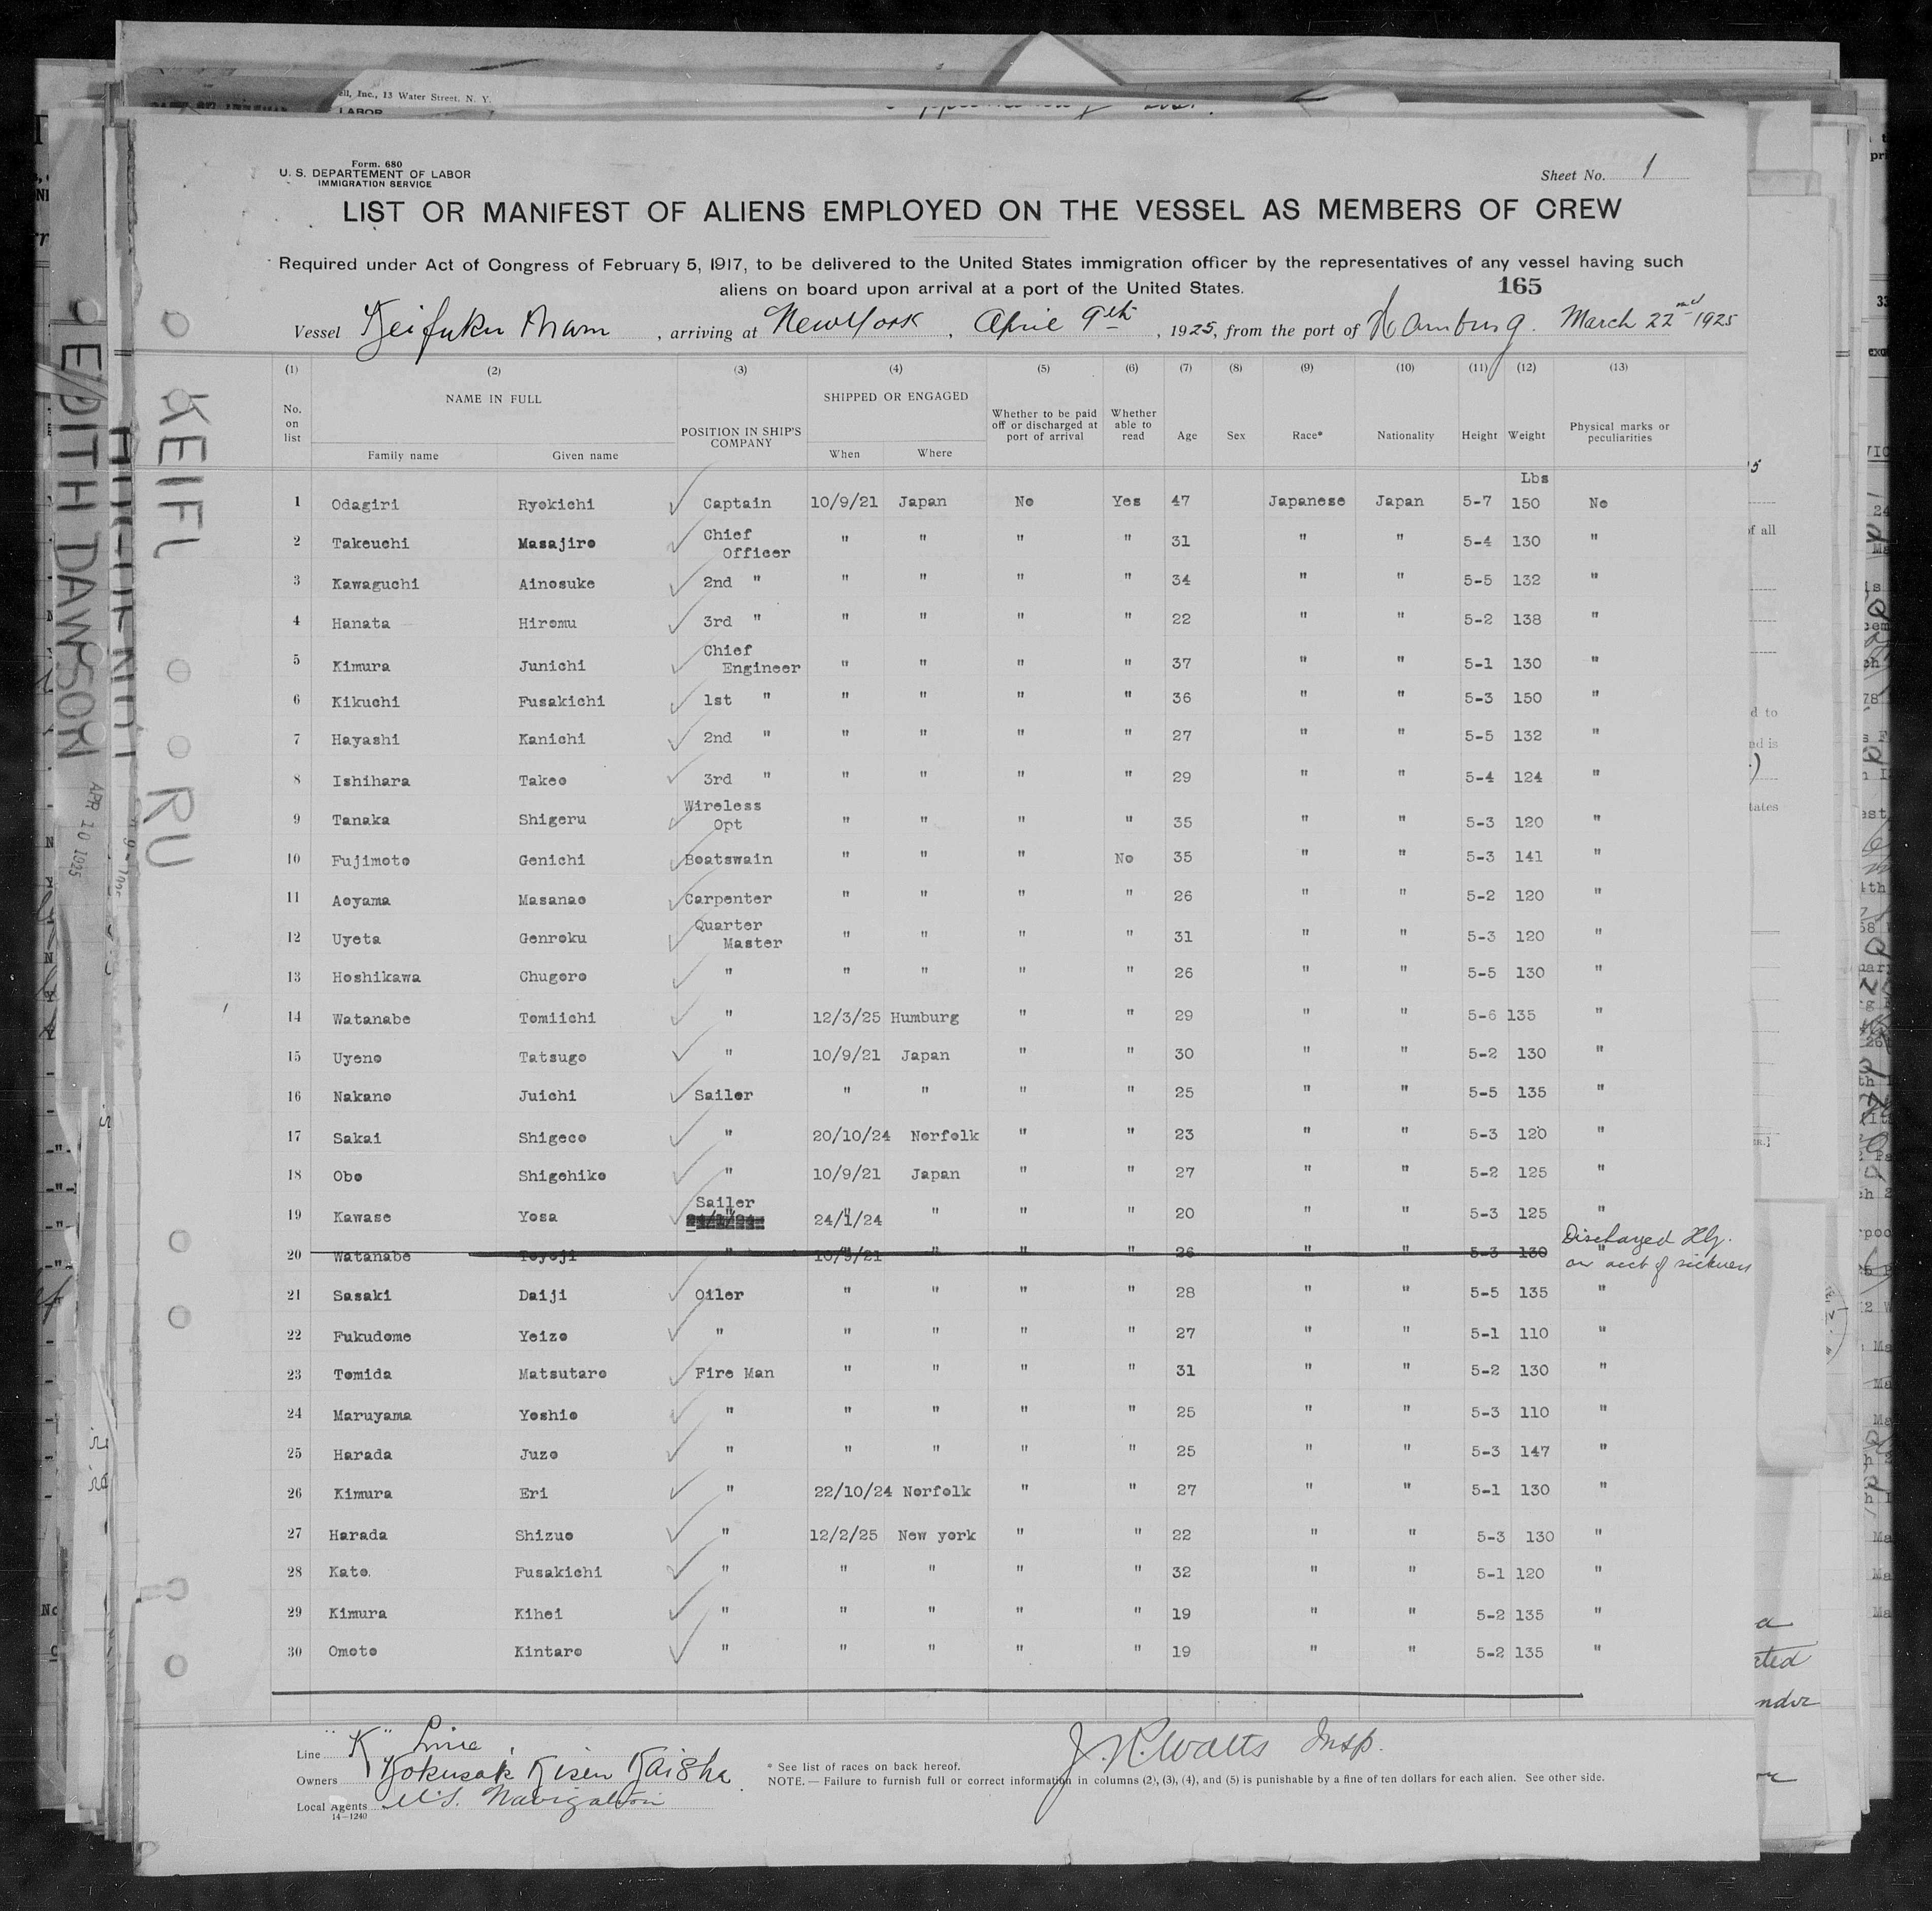 ell, Inc., 13 Water Street, N. Y.
LABOR
Form. 680
U. S. DEPARTEMENT OF LABOR
IMMIGRATION SERVICE
Sheet No. 1
LIST OR MANIFEST OF ALIENS EMPLOYED ON THE VESSEL AS MEMBERS OF CREW
Required under Act of Congress of February 5, 1917, to be delivered to the United States immigration officer by the representatives of any vessel having such
aliens on board upon arrival at a port of the United States.
165
Vessel Keifuku Maru, arriving at New York, April 9th, 1925, from the port of Hamburg. March 22nd 1925
(1) (2) (3) (4) (5) (6) (7) (8) (9) (10) (11) (12) (13)
No. on list NAME IN FULL Family name Given name POSITION IN SHIP'S COMPANY SHIPPED OR ENGAGED When Where Whether to be paid off or discharged at port of arrival Whether able to read Age Sex Race* Nationality Height Weight Physical marks or peculiarities
Lbs
1 Odagiri Ryokichi Captain 10/9/21 Japan No Yes 47 Japanese Japan 5-7 150 No
2 Takeuchi Masajiro Chief Officer " " " " 31 " " 5-4 130 "
3 Kawaguchi Ainosuke 2nd " " " " " 34 " " 5-5 132 "
4 Hanata Hiromu 3rd " " " " " 22 " " 5-2 138 "
5 Kimura Junichi Chief Engineer " " " " 37 " " 5-1 130 "
6 Kikuchi Fusakichi 1st " " " " " 36 " " 5-3 150 "
7 Hayashi Kanichi 2nd " " " " " 27 " " 5-5 132 "
8 Ishihara Takeo 3rd " " " " " 29 " " 5-4 124 "
9 Tanaka Shigeru Wireless Opt " " " " 35 " " 5-3 120 "
10 Fujimoto Genichi Boatswain " " " No 35 " " 5-3 141 "
11 Aoyama Masanao Carpenter " " " " 26 " " 5-2 120 "
12 Uyeta Genroku Quarter Master " " " " 31 " " 5-3 120 "
13 Hoshikawa Chugoro " " " " " 26 " " 5-5 130 "
14 Watanabe Tomiichi " 12/3/25 Humburg " " 29 " " 5-6 135 "
15 Uyeno Tatsugo " 10/9/21 Japan " " 30 " " 5-2 130 "
16 Nakano Juichi Sailer " " " " 25 " " 5-5 135 "
17 Sakai Shigeco " 20/10/24 Norfolk " " 23 " " 5-3 120 "
18 Obo Shigehiko " 10/9/21 Japan " " 27 " " 5-2 125 "
19 Kawase Yosa Sailer 24/1/24 " " " 20 " " 5-3 125 "
20 Watanabe Toyoji " 10/9/21 " " " 26 " " 5-3 130 " Discharged Hbg. on acct of sickness
21 Sasaki Daiji Oiler " " " " 28 " " 5-5 135 "
22 Fukudome Yeizo " " " " " 27 " " 5-1 110 "
23 Tomida Matsutaro Fire Man " " " " 31 " " 5-2 130 "
24 Maruyama Yoshio " " " " " 25 " " 5-3 110 "
25 Harada Juzo " " " " " 25 " " 5-3 147 "
26 Kimura Eri " 22/10/24 Norfolk " " 27 " " 5-1 130 "
27 Harada Shizuo " 12/2/25 New york " " 22 " " 5-3 130 "
28 Kato. Fusakichi " " " " " 32 " " 5-1 120 "
29 Kimura Kihei " " " " " 19 " " 5-2 135 "
30 Omoto Kintaro " " " " " 19 " " 5-2 135 "
Line "K" Line
Owners Kokusai Kisen Kaisha
Local Agents U.S. Navigation
14—1240
J. R. Watts Insp.
* See list of races on back hereof.
NOTE.—Failure to furnish full or correct information in columns (2), (3), (4), and (5) is punishable by a fine of ten dollars for each alien. See other side.
KEIFU
RU
EDITH DAWSON
APR 10 1925